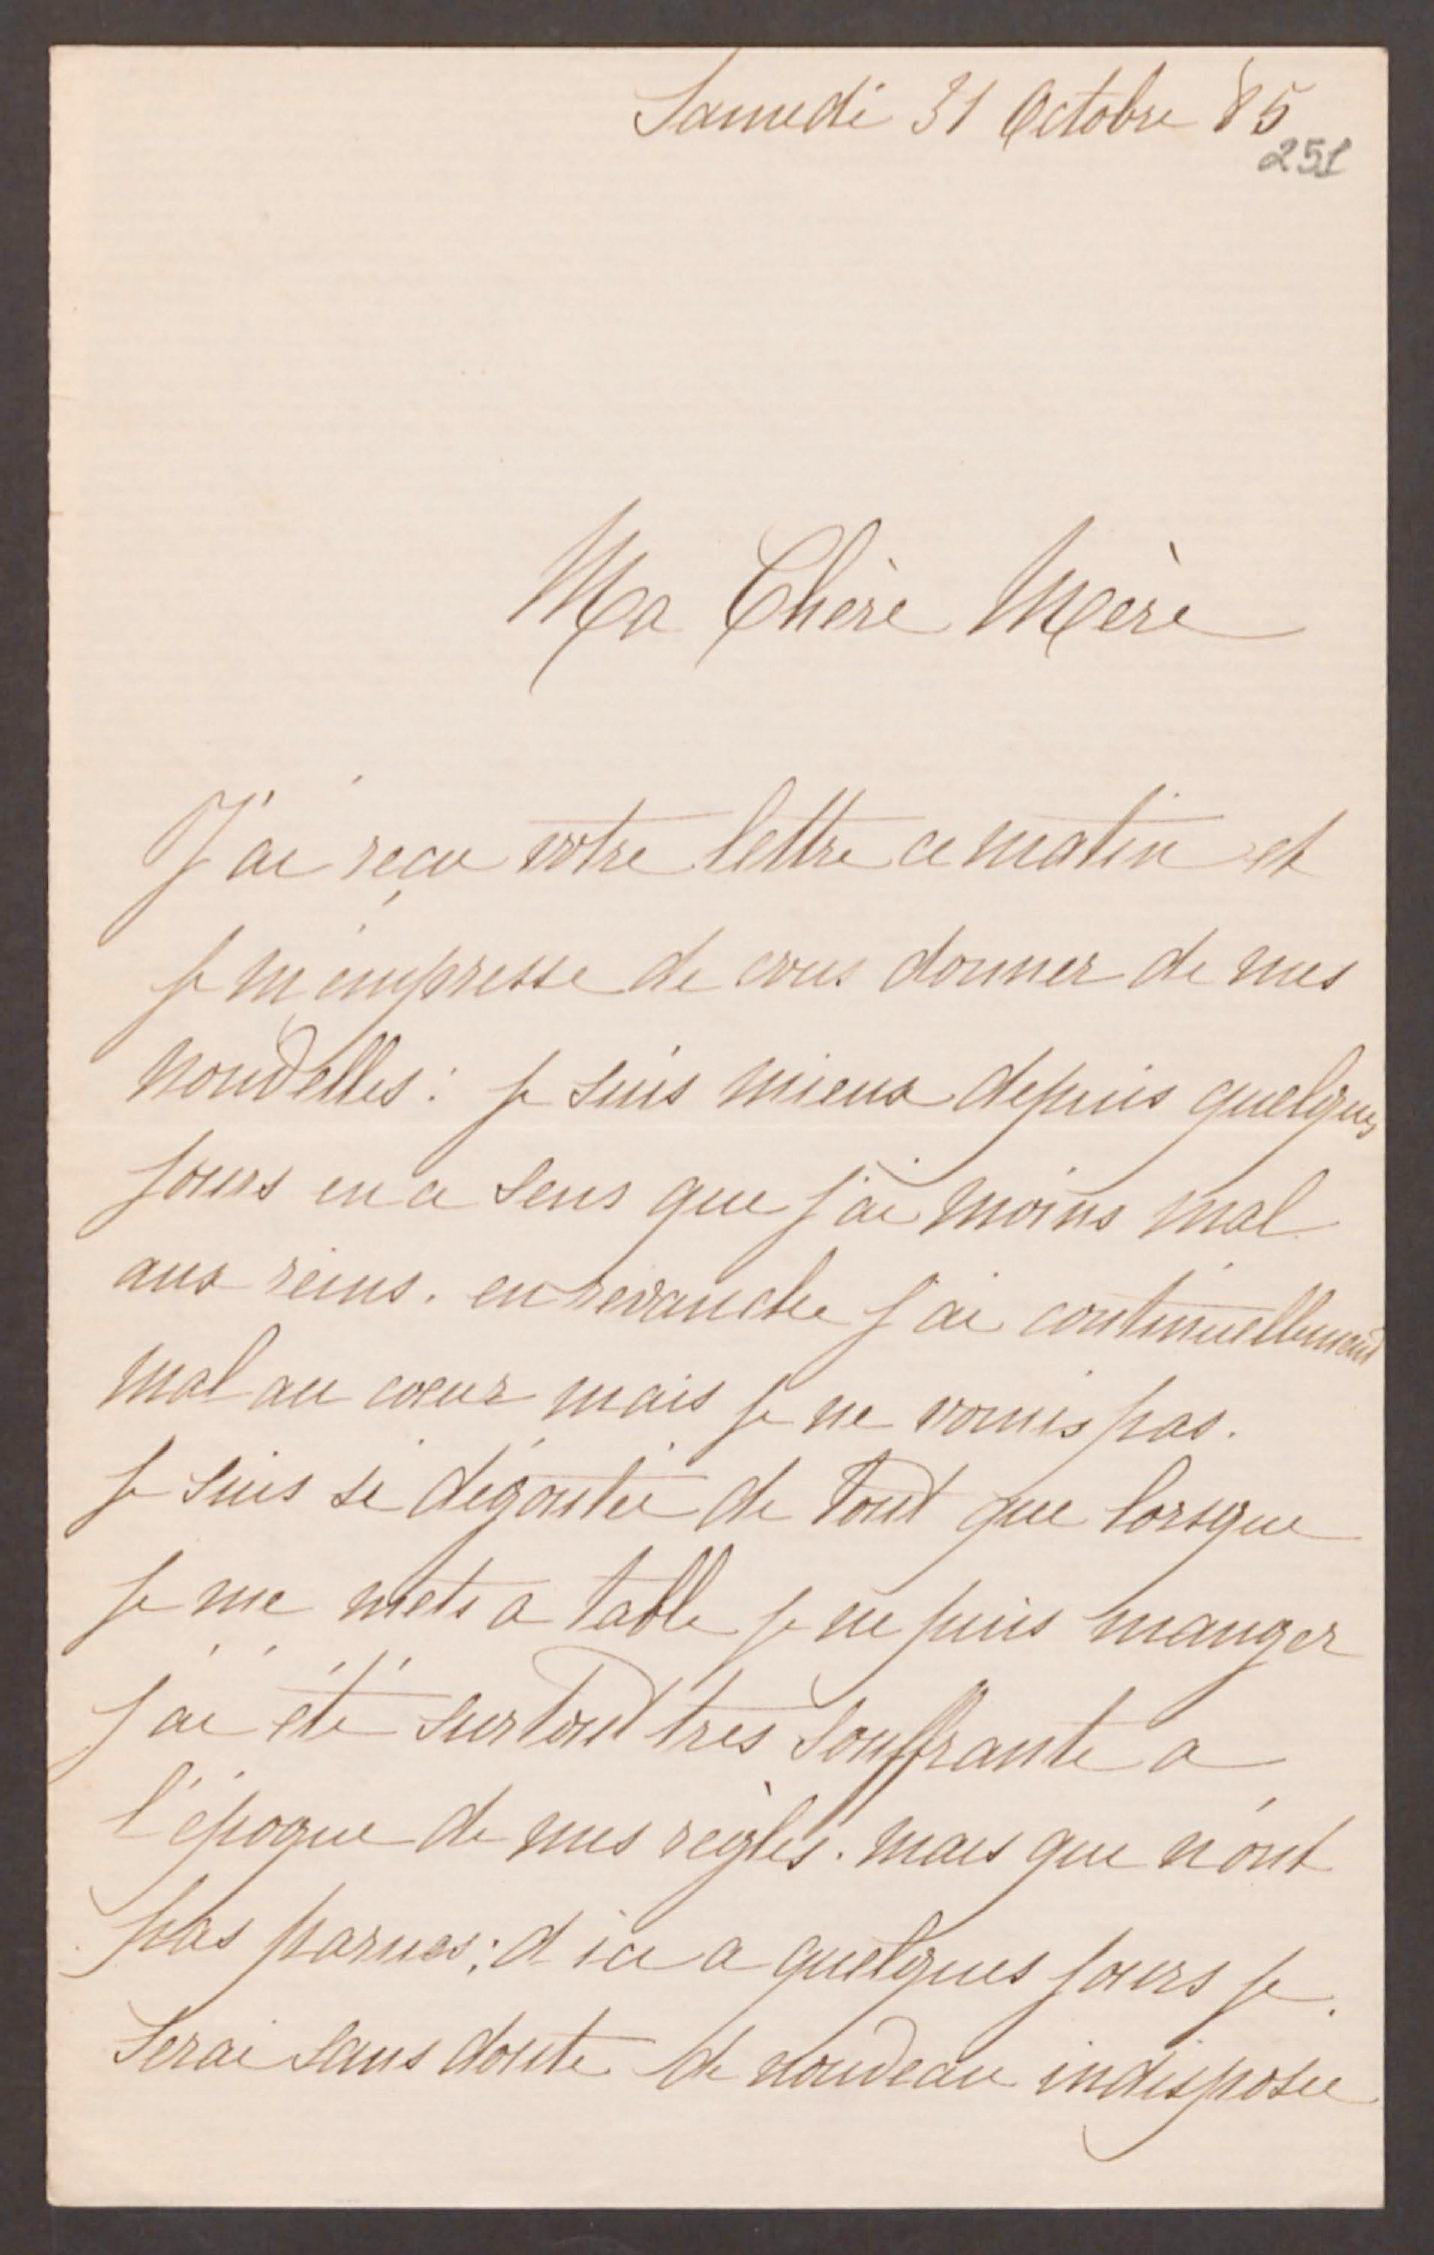 Samedi 31 Octobre 85
251
Ma Chère Mère
J'ai reçu votre lettre ce matin et
je m'empresse de vous donner de mes
nouvelles : je suis mieux depuis quelques
jours en ce sens que j'ai moins mal
aux reins. en revanche j'ai continuellement
mal au cœur mais je ne vomis pas.
je suis si dégoutée de tout que lorsque
je me mets a table je ne puis manger
j'ai été surtout très souffrante a
l'époque de mes règles. mais que n'ont
pas parues; d'ici a quelques jours je
serai sans doute de nouveau indisposée